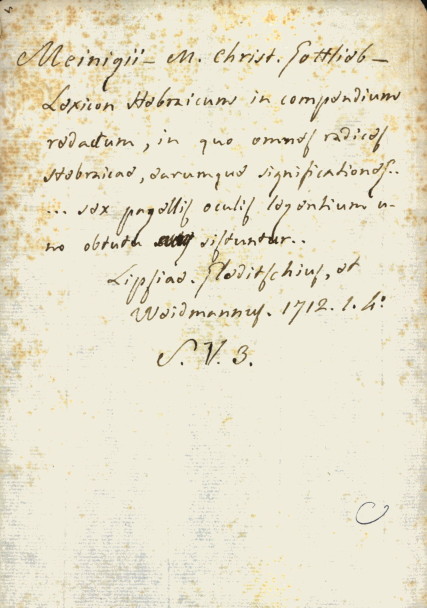 Meinigii - M. Christ. Gottlieb -
Lexicon Hebraicum in compendium
redactum, in quo omnes radices
Hebraicae, earumque significationes..
... sex pagellis oculis legentium u-
no obtutu sistuntur..
Lipsiae. Gleditschius, et
Weidmannus. 1712. 1. 4º
S. V. 3.